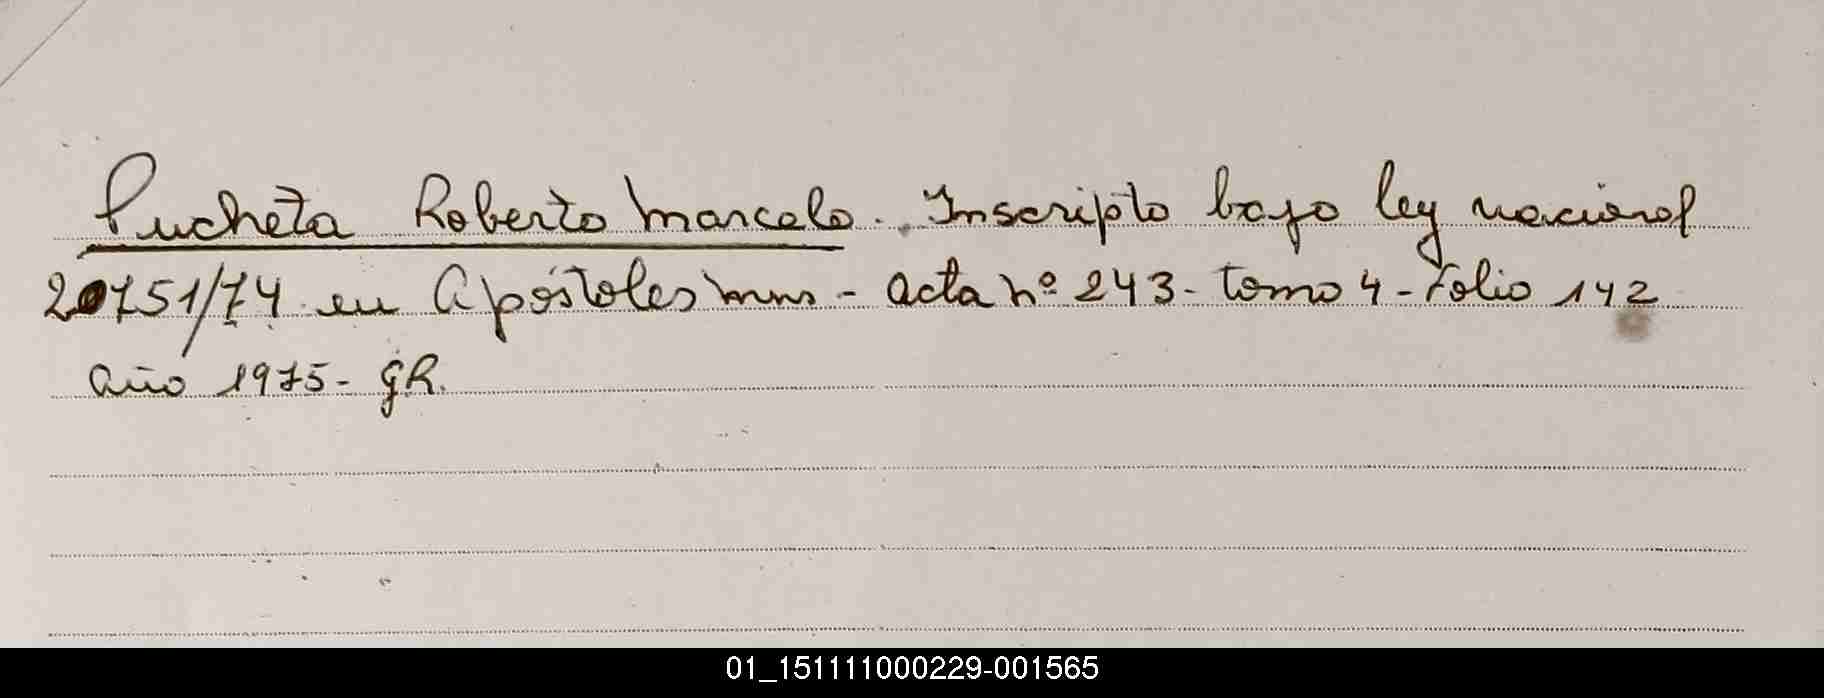 Pucheta Roberto Marcelo. Inscripto bajo ley nacional
20751/74 en Apóstoles Mns - acta nº 243 - tomo 4 - Folio 142
año 1975 - GR.
01_151111000229-001565